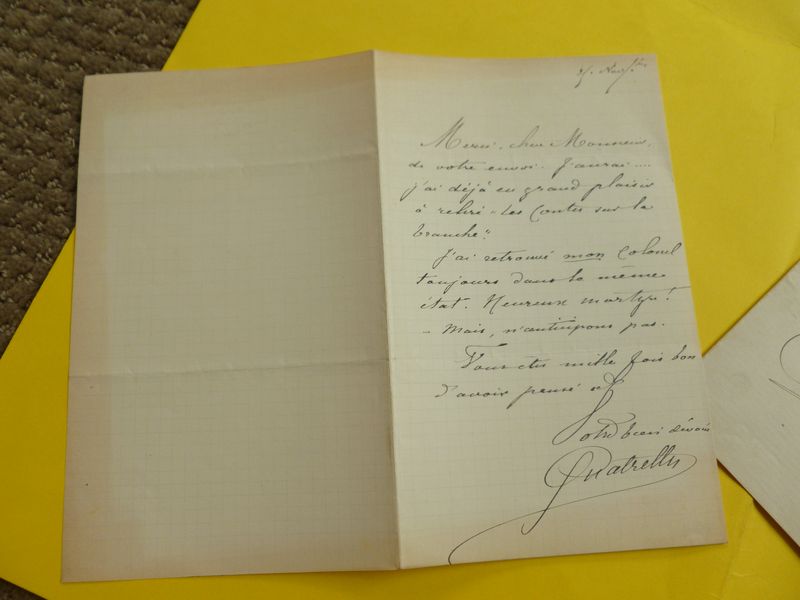 25. Nov.bre
Merci, cher Monsieur,
de votre envoi. J'aurai ....
j'ai déjà eu grand plaisir
à reliré "les Contes sur la
branche".
J'ai retrouvé mon Colonel
toujours dans le même
état. Heureux martyr!
- Mais, n'anticipons pas.
Vous êtes mille fois bon
d'avoir pensé et
Votre bien dévoué
Quatrelles